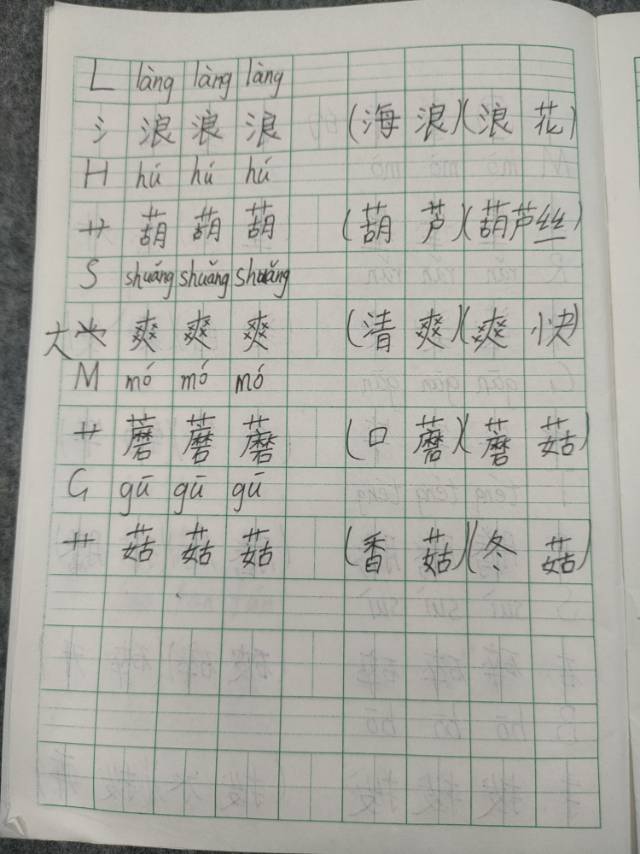 L làng làng làng
氵 浪 浪 浪 (海 浪)(浪 花)
H hú hú hú
艹 葫 葫 葫 (葫 芦)(葫芦丝)
S shuǎng shuǎng shuǎng
大 爽 爽 爽 (清 爽)(爽 快)
M mó mó mó
艹 蘑 蘑 蘑 (口 蘑)(蘑 菇)
G gū gū gū
艹 菇 菇 菇 (香 菇)(冬 菇)